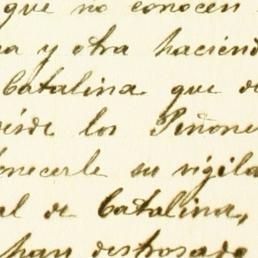 que no conocen
a y otra haciend
Catalina que de
desde los Piñone
enecerle su vigila
al de Catalina,
han destrosado